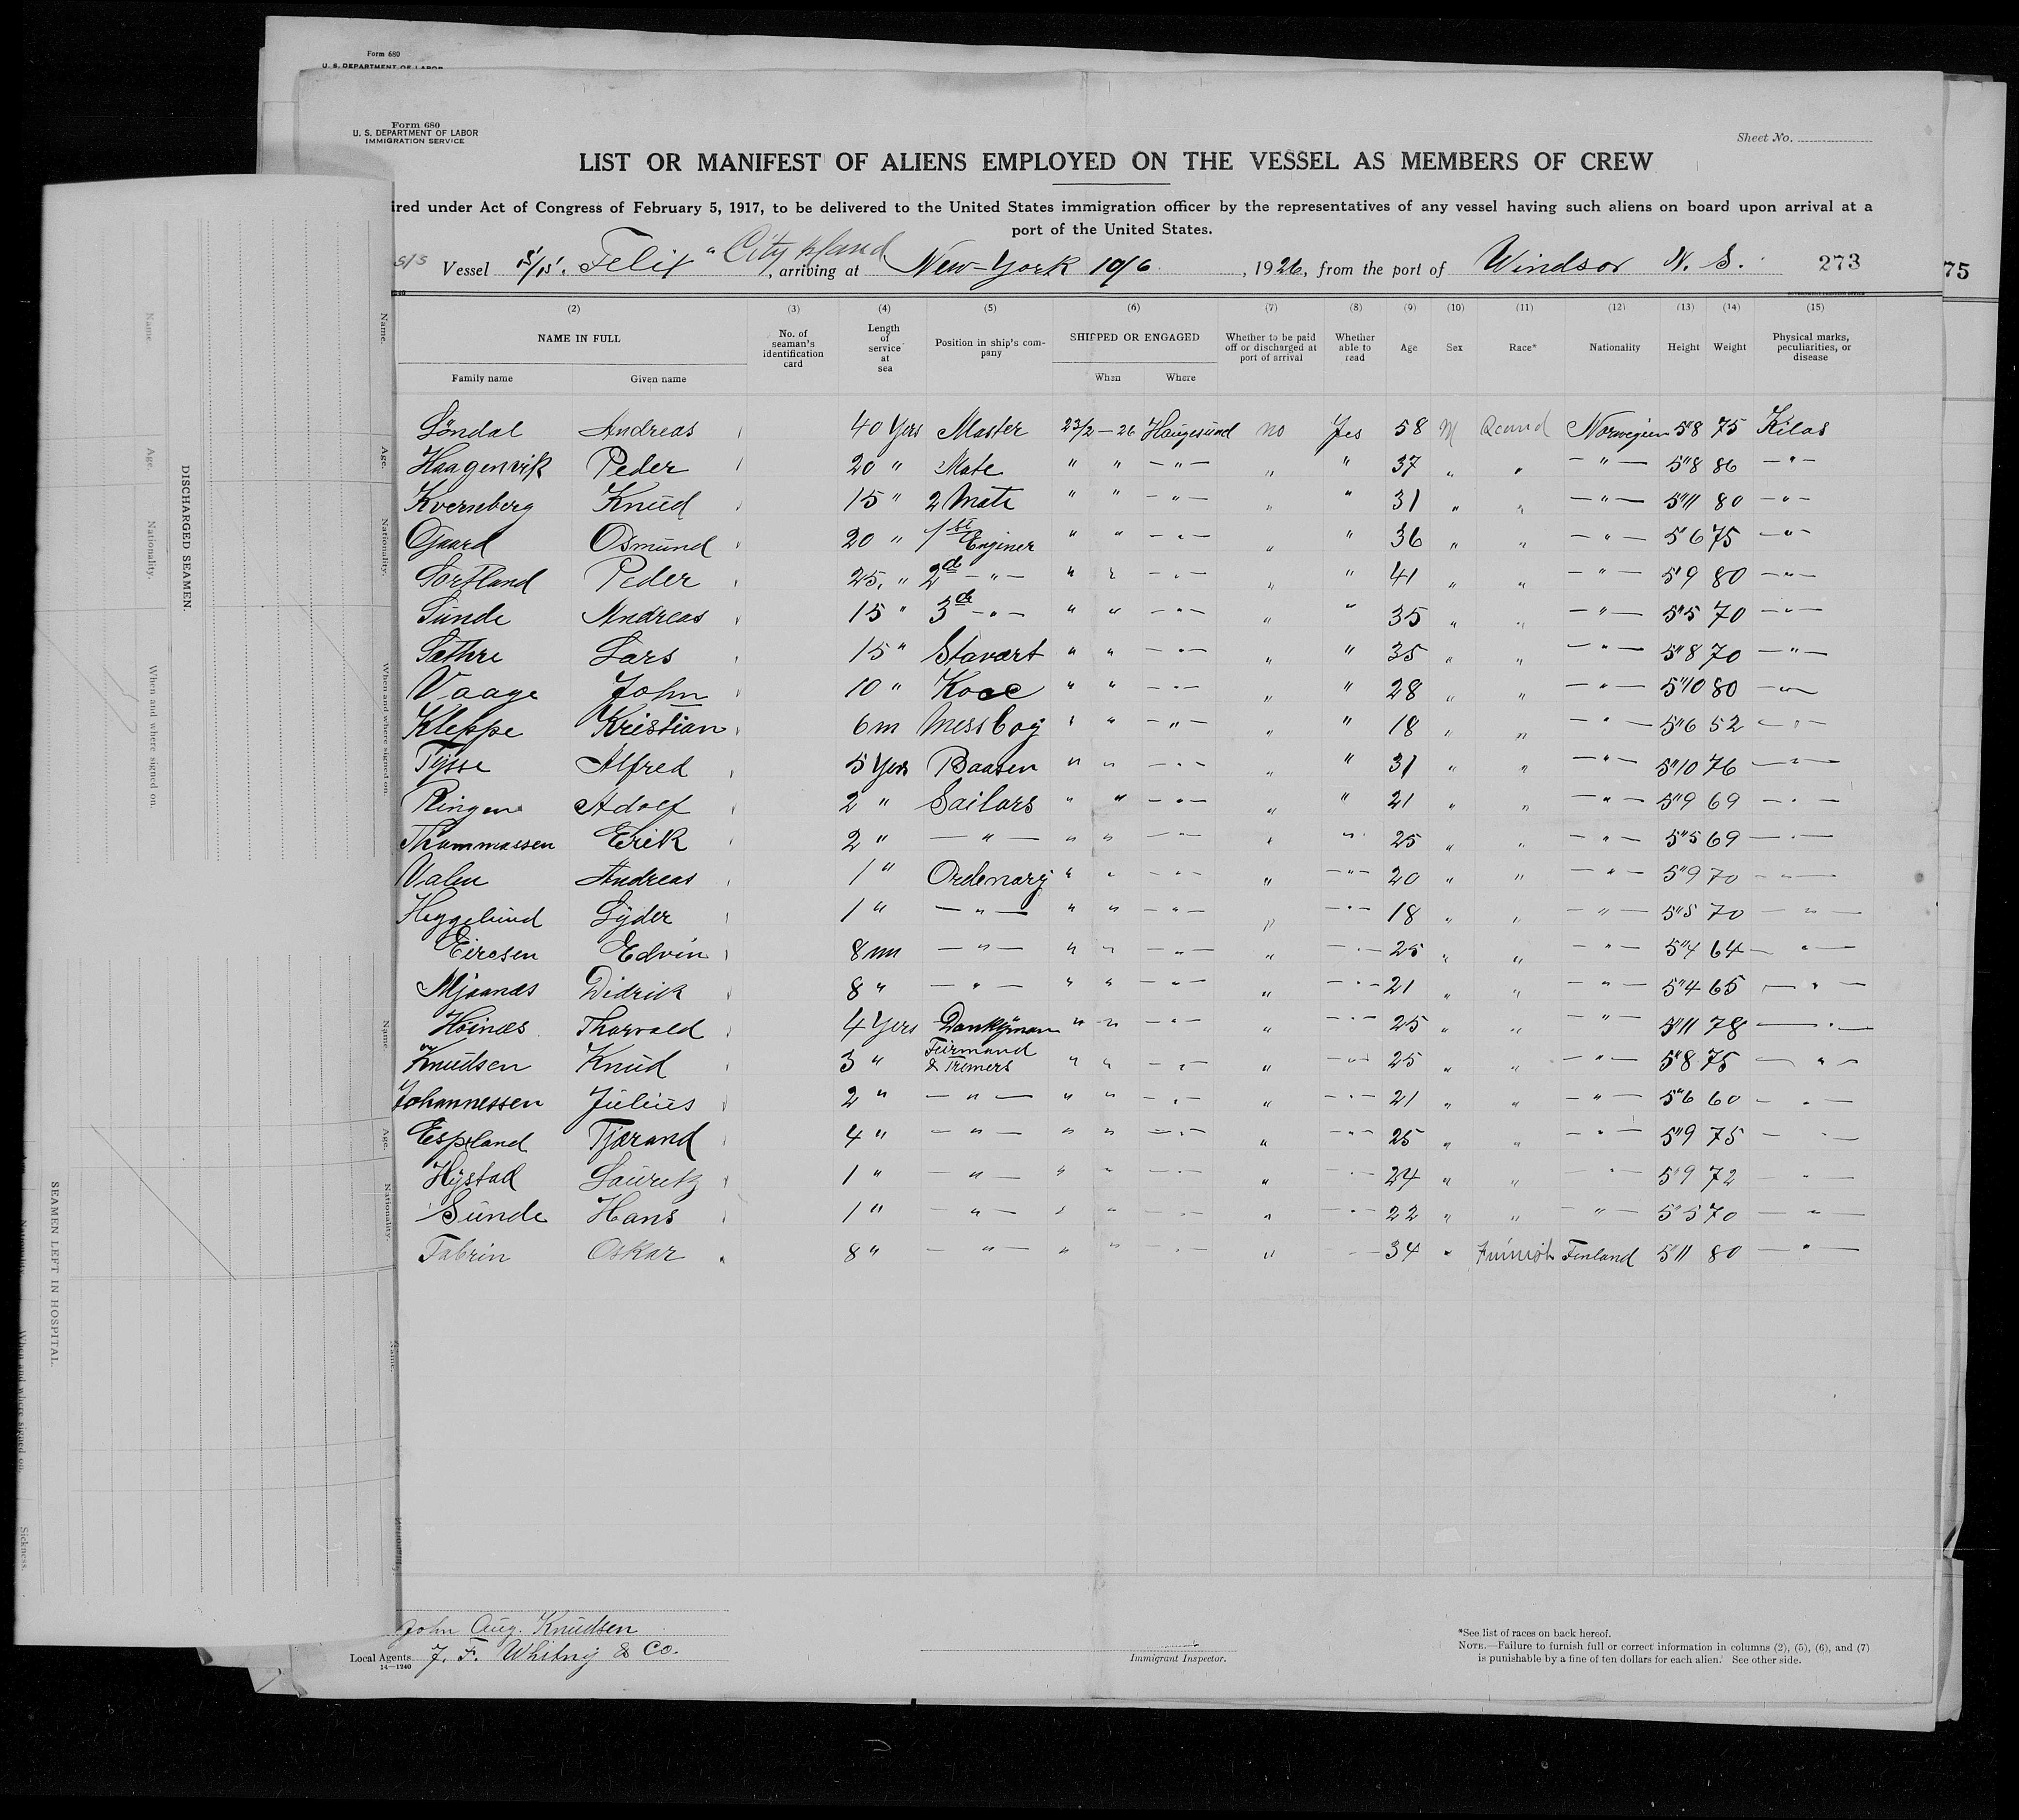 Form 680
U. S. DEPARTMENT OF LABOR
Form 680
U. S. DEPARTMENT OF LABOR
IMMIGRATION SERVICE
Sheet No.
LIST OR MANIFEST OF ALIENS EMPLOYED ON THE VESSEL AS MEMBERS OF CREW
ired under Act of Congress of February 5, 1917, to be delivered to the United States immigration officer by the representatives of any vessel having such aliens on board upon arrival at a
port of the United States.
S/S Vessel S/S. Felix " City Island , arriving at New-York 10/6 , 1926, from the port of Windsor N. S. 273
75
(2) (3) (4) (5) (6) (7) (8) (9) (10) (11) (12) (13) (14) (15)
NAME IN FULL No. of seaman's identification card Length of service at sea Position in ship's company SHIPPED OR ENGAGED Whether to be paid off or discharged at port of arrival Whether able to read Age Sex Race* Nationality Height Weight Physical marks, peculiarities, or disease
Family name Given name When Where
Söndal Andreas 40 Yers Master 23/2 – 26 Haugesund no Yes 58 M Scand Norwegien 5"8 75 Kilos
Haagenvik Peder 20 " Mate " " — " — " " 37 " " — " — 5"8 86 — " —
Kvernberg Knud 15 " 2 Mate " " — " — " " 31 " " — " — 5"11 80 — " —
Gaard Osmund 20 " 1st Enginer " " — " — " " 36 " " — " — 5"6 75 — " —
Sortland Peder 25 " 2d — " — " " — " — " " 41 " " — " — 5"9 80 — " —
Sunde Andreas 15 " 3de — " — " " — " — " " 35 " " — " — 5"5 70 — " —
Sæthre Lars 15 " Stavart " " — " — " " 35 " " — " — 5"8 70 — " —
Vaage John 10 " Kocc " " — " — " " 28 " " — " — 5"10 80 — " —
Kleppe Kristian 6 m Messboy " " — " — " " 18 " " — " — 5"6 52 — " —
Tysse Alfred 5 Yers Baasen " " — " — " " 31 " " — " — 5"10 76 — " —
Ringen Adolf 2 " Sailors " " — " — " " 21 " " — " — 5"9 69 — " —
Thommassen Erik 2 " — " — " " — " — " " 25 " " — " — 5"5 69 — " —
Valen Andreas 1 " Ordenary " " — " — " — " — 20 " " — " — 5"9 70 — " —
Heggelund Lyder 1 " — " — " " — " — " — " — 18 " " — " — 5"5 70 — " —
Eircsen Edvin 8 m — " — " " — " — " — " — 25 " " — " — 5"4 64 — " —
Mjaanæs Didrick 8 " — " — " " — " — " — " — 21 " " — " — 5"4 65 — " —
Höinæs Thorvald 4 Yers Donkyman " " — " — " — " — 25 " " — " — 5"11 78 — " —
Knudsen Knud 3 " Feirmand & Tremers " " — " — " — " — 25 " " — " — 5"8 75 — " —
Johannessen Julius 2 " — " — " " — " — " — " — 21 " " — " — 5"6 60 — " —
Espeland Tjerand 4 " — " — " " — " — " — " — 25 " " — " — 5"9 75 — " —
Hystad Lauritz 1 " — " — " " — " — " — " — 24 " " — " — 5"9 72 — " —
Sunde Hans 1 " — " — " " — " — " — " — 22 " " — " — 5"5 70 — " —
Tabrin Oskar 8 " — " — " " — " — " — 34 " Finnish Finland 5"11 80 — " —
John Aug. Knudsen
Local Agents J. F. Whitny & Co.
14—1240
Immigrant Inspector.
*See list of races on back hereof.
NOTE.—Failure to furnish full or correct information in columns (2), (5), (6), and (7)
is punishable by a fine of ten dollars for each alien. See other side.
DISCHARGED SEAMEN.
Name Age. Nationality. When and where signed on.
Name. Age. Nationality. When and where signed on.
SEAMEN LEFT IN HOSPITAL.
Name. Age. Nationality.
When and where signed on. Sickness.